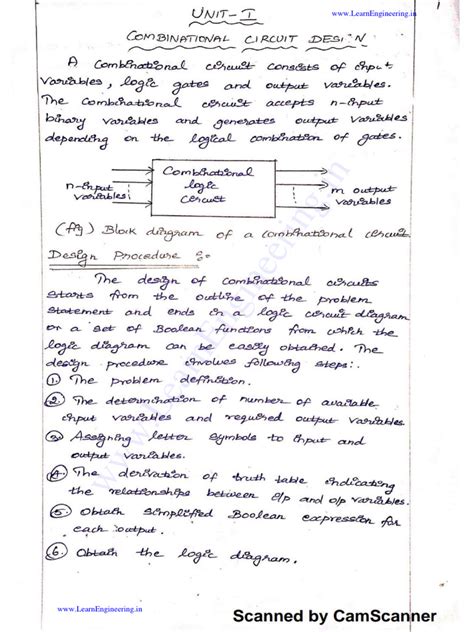 www.LearnEngineering.in
1
UNIT-I
COMBINATIONAL CIRCUIT DESIGN
A Combinational circuit consists of input
variables, logic gates and output variables.
The combinational circuit accepts n-input
binary variables and generates output variables
depending on the logical combination of gates.
n-input
variables
Combinational
logic
circuit
m output
variables
(fig) Block diagram of a combinational circuit
Design Procedure :-
The design of combinational circuits
starts from the outline of the problem
statement and ends in a logic circuit diagram
or a set of Boolean functions from which the
logic diagram can be easily obtained. The
design procedure involves following steps:.
1. The problem definition.
2. The determination of number of available
input variables and required output variables
3. Assigning letter symbols to input and
output variables.
4. The derivation of truth table indicating
the relationships between i/p and o/p variables.
5. Obtain simplified Boolean expression for
each output.
6. Obtain the logic diagram.
www.LearnEngineering.in
www.LearnEngineering.in
Scanned by CamScanner